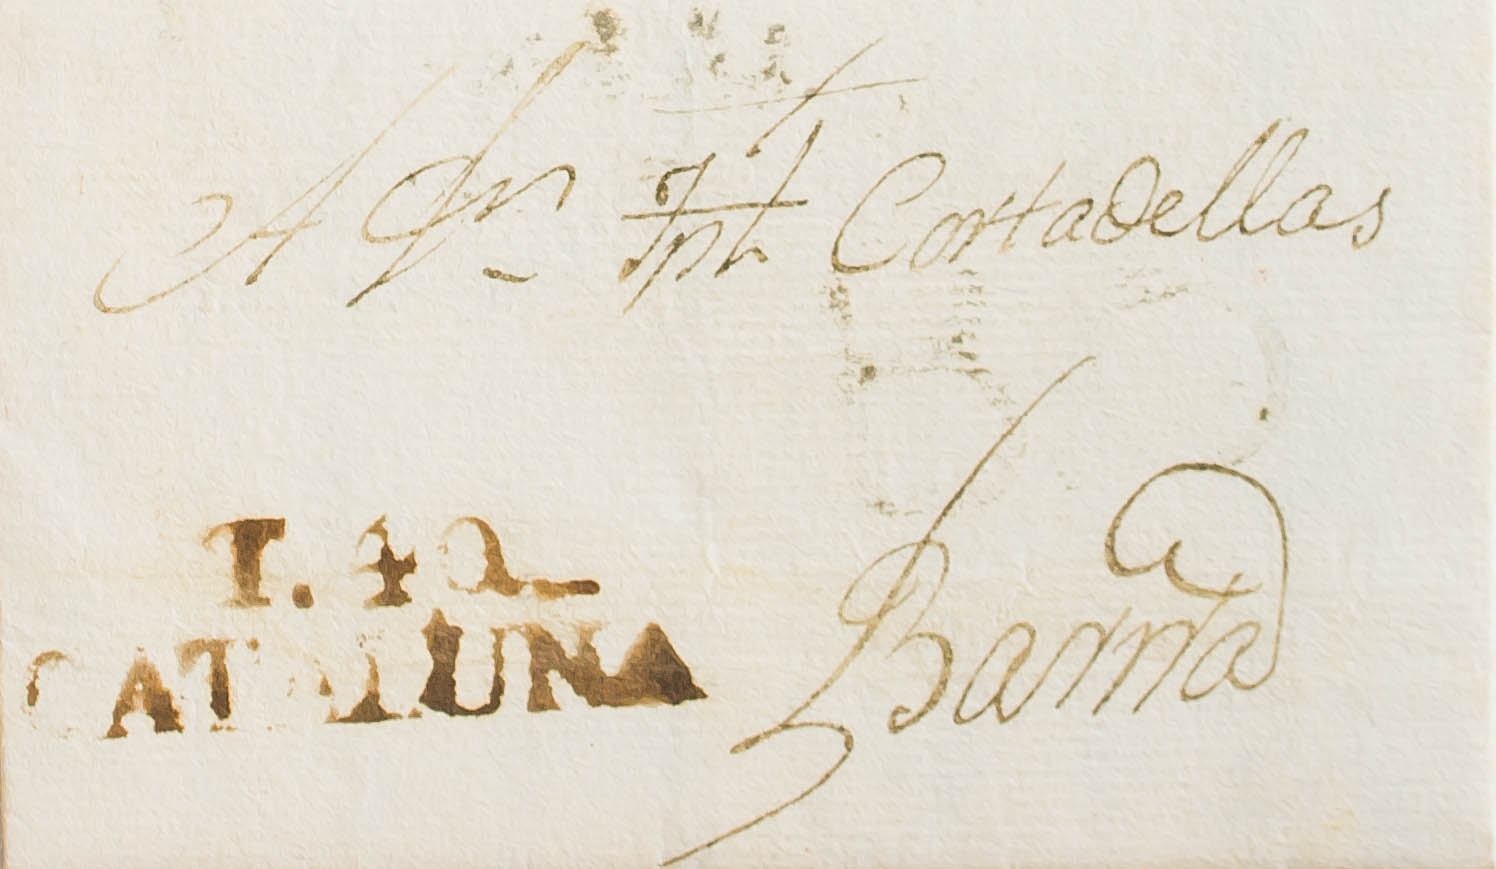 A Dn Jph Cortadellas
T. 40
CATALUNA
Barna